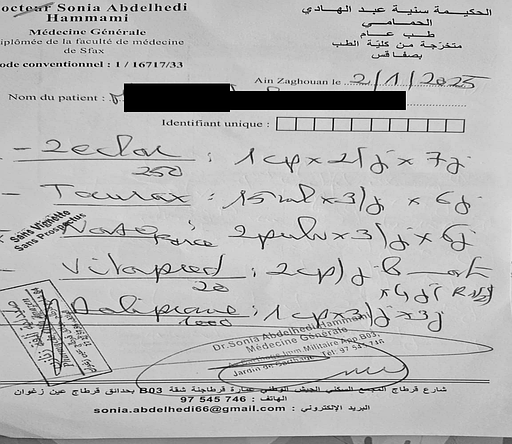 Docteur Sonia Abdelhedi
Hammami
Médecine Générale
Diplômée de la faculté de médecine
de Sfax
Code conventionnel : 1 / 16717/33
الحكيمة سنية عبد الهادي
الحمامي
طب عام
متخرجة من كلية الطب
بصفاقس
Ain Zaghouan le 2/1/2025
Nom du patient :
Identifiant unique :
- Zeclar : 1 cp x 2/j x 7j
250
- : 15 ml x 3/j x 6j
2 pulv x 3/j x 6j
- : 2 cp/j
20
x 4j
- Doliprane : 1 cp x 3/j x 3j
1000
Sans Vignette
Sans Prospectus
Dr.Sonia Abdelhedi Hammami
Médecine Générale
Imm Militaire App B03,
Jardin de Carthage Tel: 97 545 746
شارع قرطاج المجمع السكني الجيش الوطني عمارة قرطاجنة شقة B03 بحدائق قرطاج عين زغوان
الهاتف : 746 545 97
البريد الإلكتروني : sonia.abdelhedi66@gmail.com